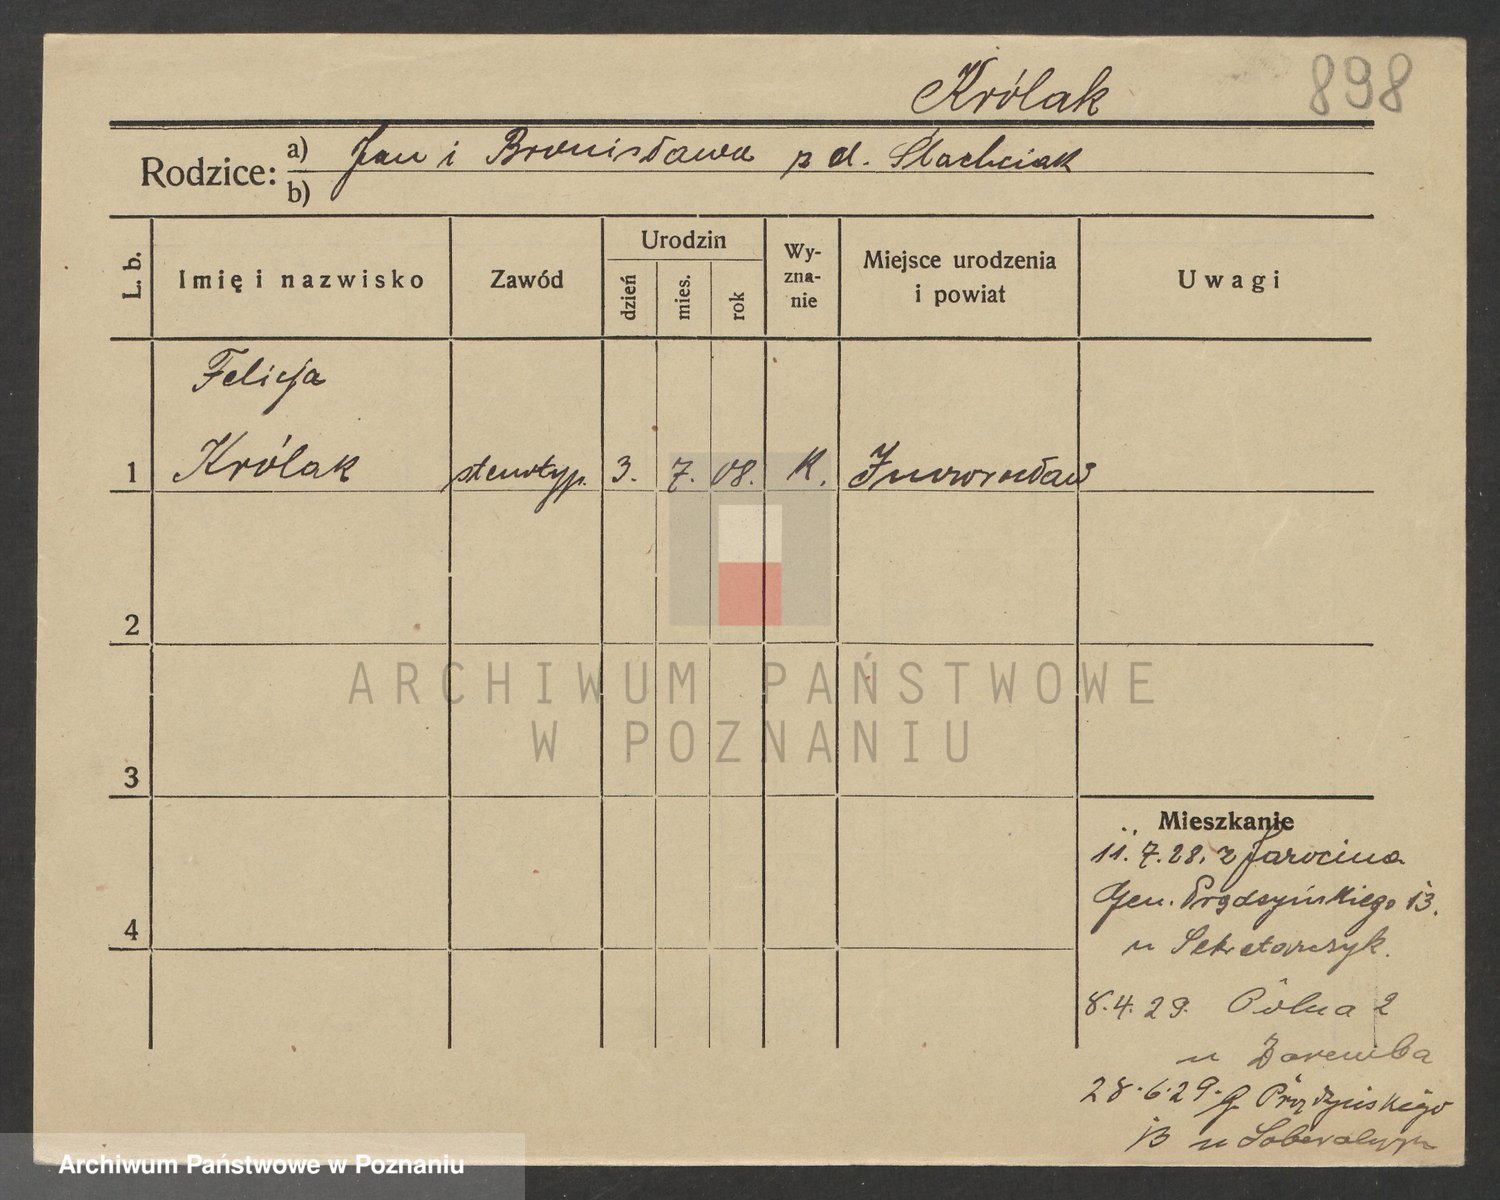 Królak
898
Rodzice:
a) Jan i Bronisława z d. Stachciak
b)
L. b.
Imię i nazwisko
Zawód
Urodzin
dzień
mies.
rok
Wy-
zna-
nie
Miejsce urodzenia
i powiat
Uwagi
Felicja
1 Królak stenotyp. 3. 7. 08. K. Inowrocław
2
3
4
Mieszkanie
11.7.28. z Jarocina
Gen. Prądzyńskiego 13.
u Sekretarczyk.
8.4.29. Polna 2
u Zaremba
28.6.29. G. Prądzyńskiego
13 u
ARCHIWUM PAŃSTWOWE
W POZNANIU
Archiwum Państwowe w Poznaniu